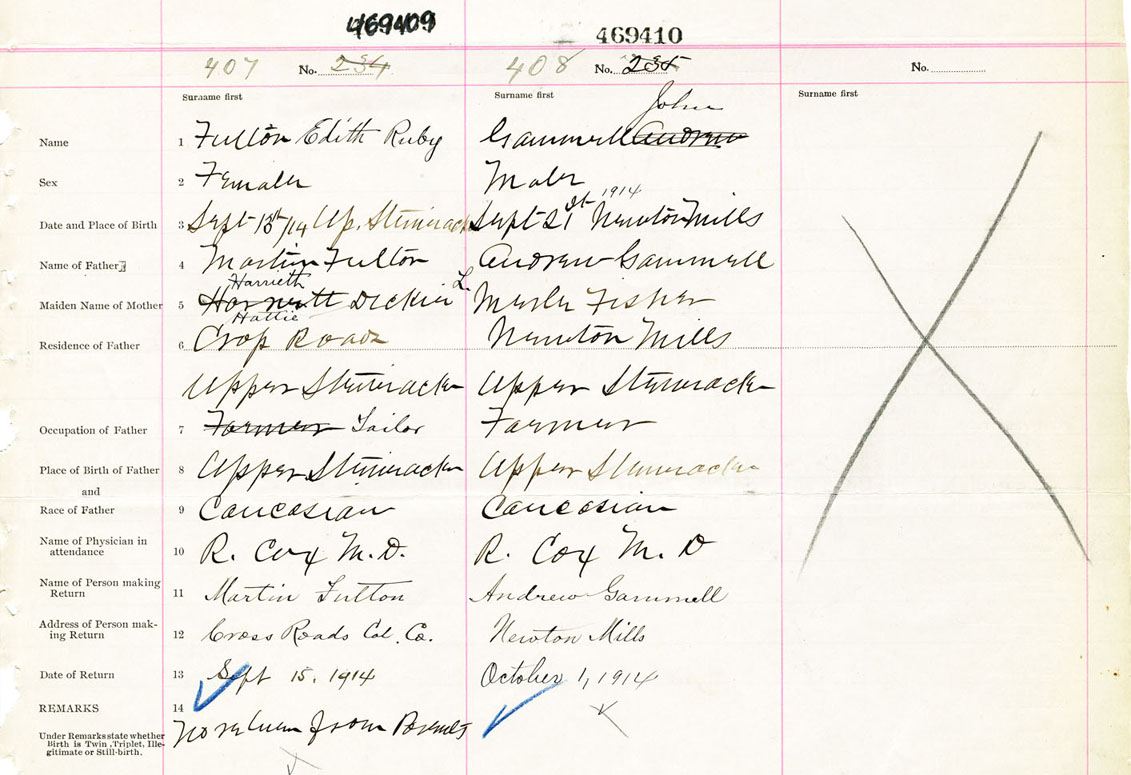 469409
469410
407 No. 234
408 No. 235
No.
Surname first
Surname first
Surname first
John
Name 1 Fulton Edith Ruby
Gammell Andrew
Sex 2 Female
Male
1914
Date and Place of Birth 3 Sept 13th/14 Up. Stewiacke
Sept 21st Newton Mills
Name of Father 4 Martin Fulton
Andrew Gammell
Harrieth
L.
Maiden Name of Mother 5 Dickie
Fisher
Hattie
Residence of Father 6 Roads
Newton Mills
Upper Stewiacke
Upper Stewiacke
Occupation of Father 7 Farmer Tailor
Farmer
Place of Birth of Father 8 Upper Stewiacke
Upper Stewiacke
and
Race of Father 9 Caucasian
Caucasian
Name of Physician in
attendance 10 R. Cox M.D.
R. Cox M. D
Name of Person making
Return 11 Martin Fulton
Andrew Gammell
Address of Person mak-
ing Return 12 Cross Roads Col. Co.
Newton Mills
Date of Return 13 Sept 15, 1914
October 1, 1914
REMARKS 14
No return from Parents
Under Remarks state whether
Birth is Twin, Triplet, Ille-
gitimate or Still-birth.